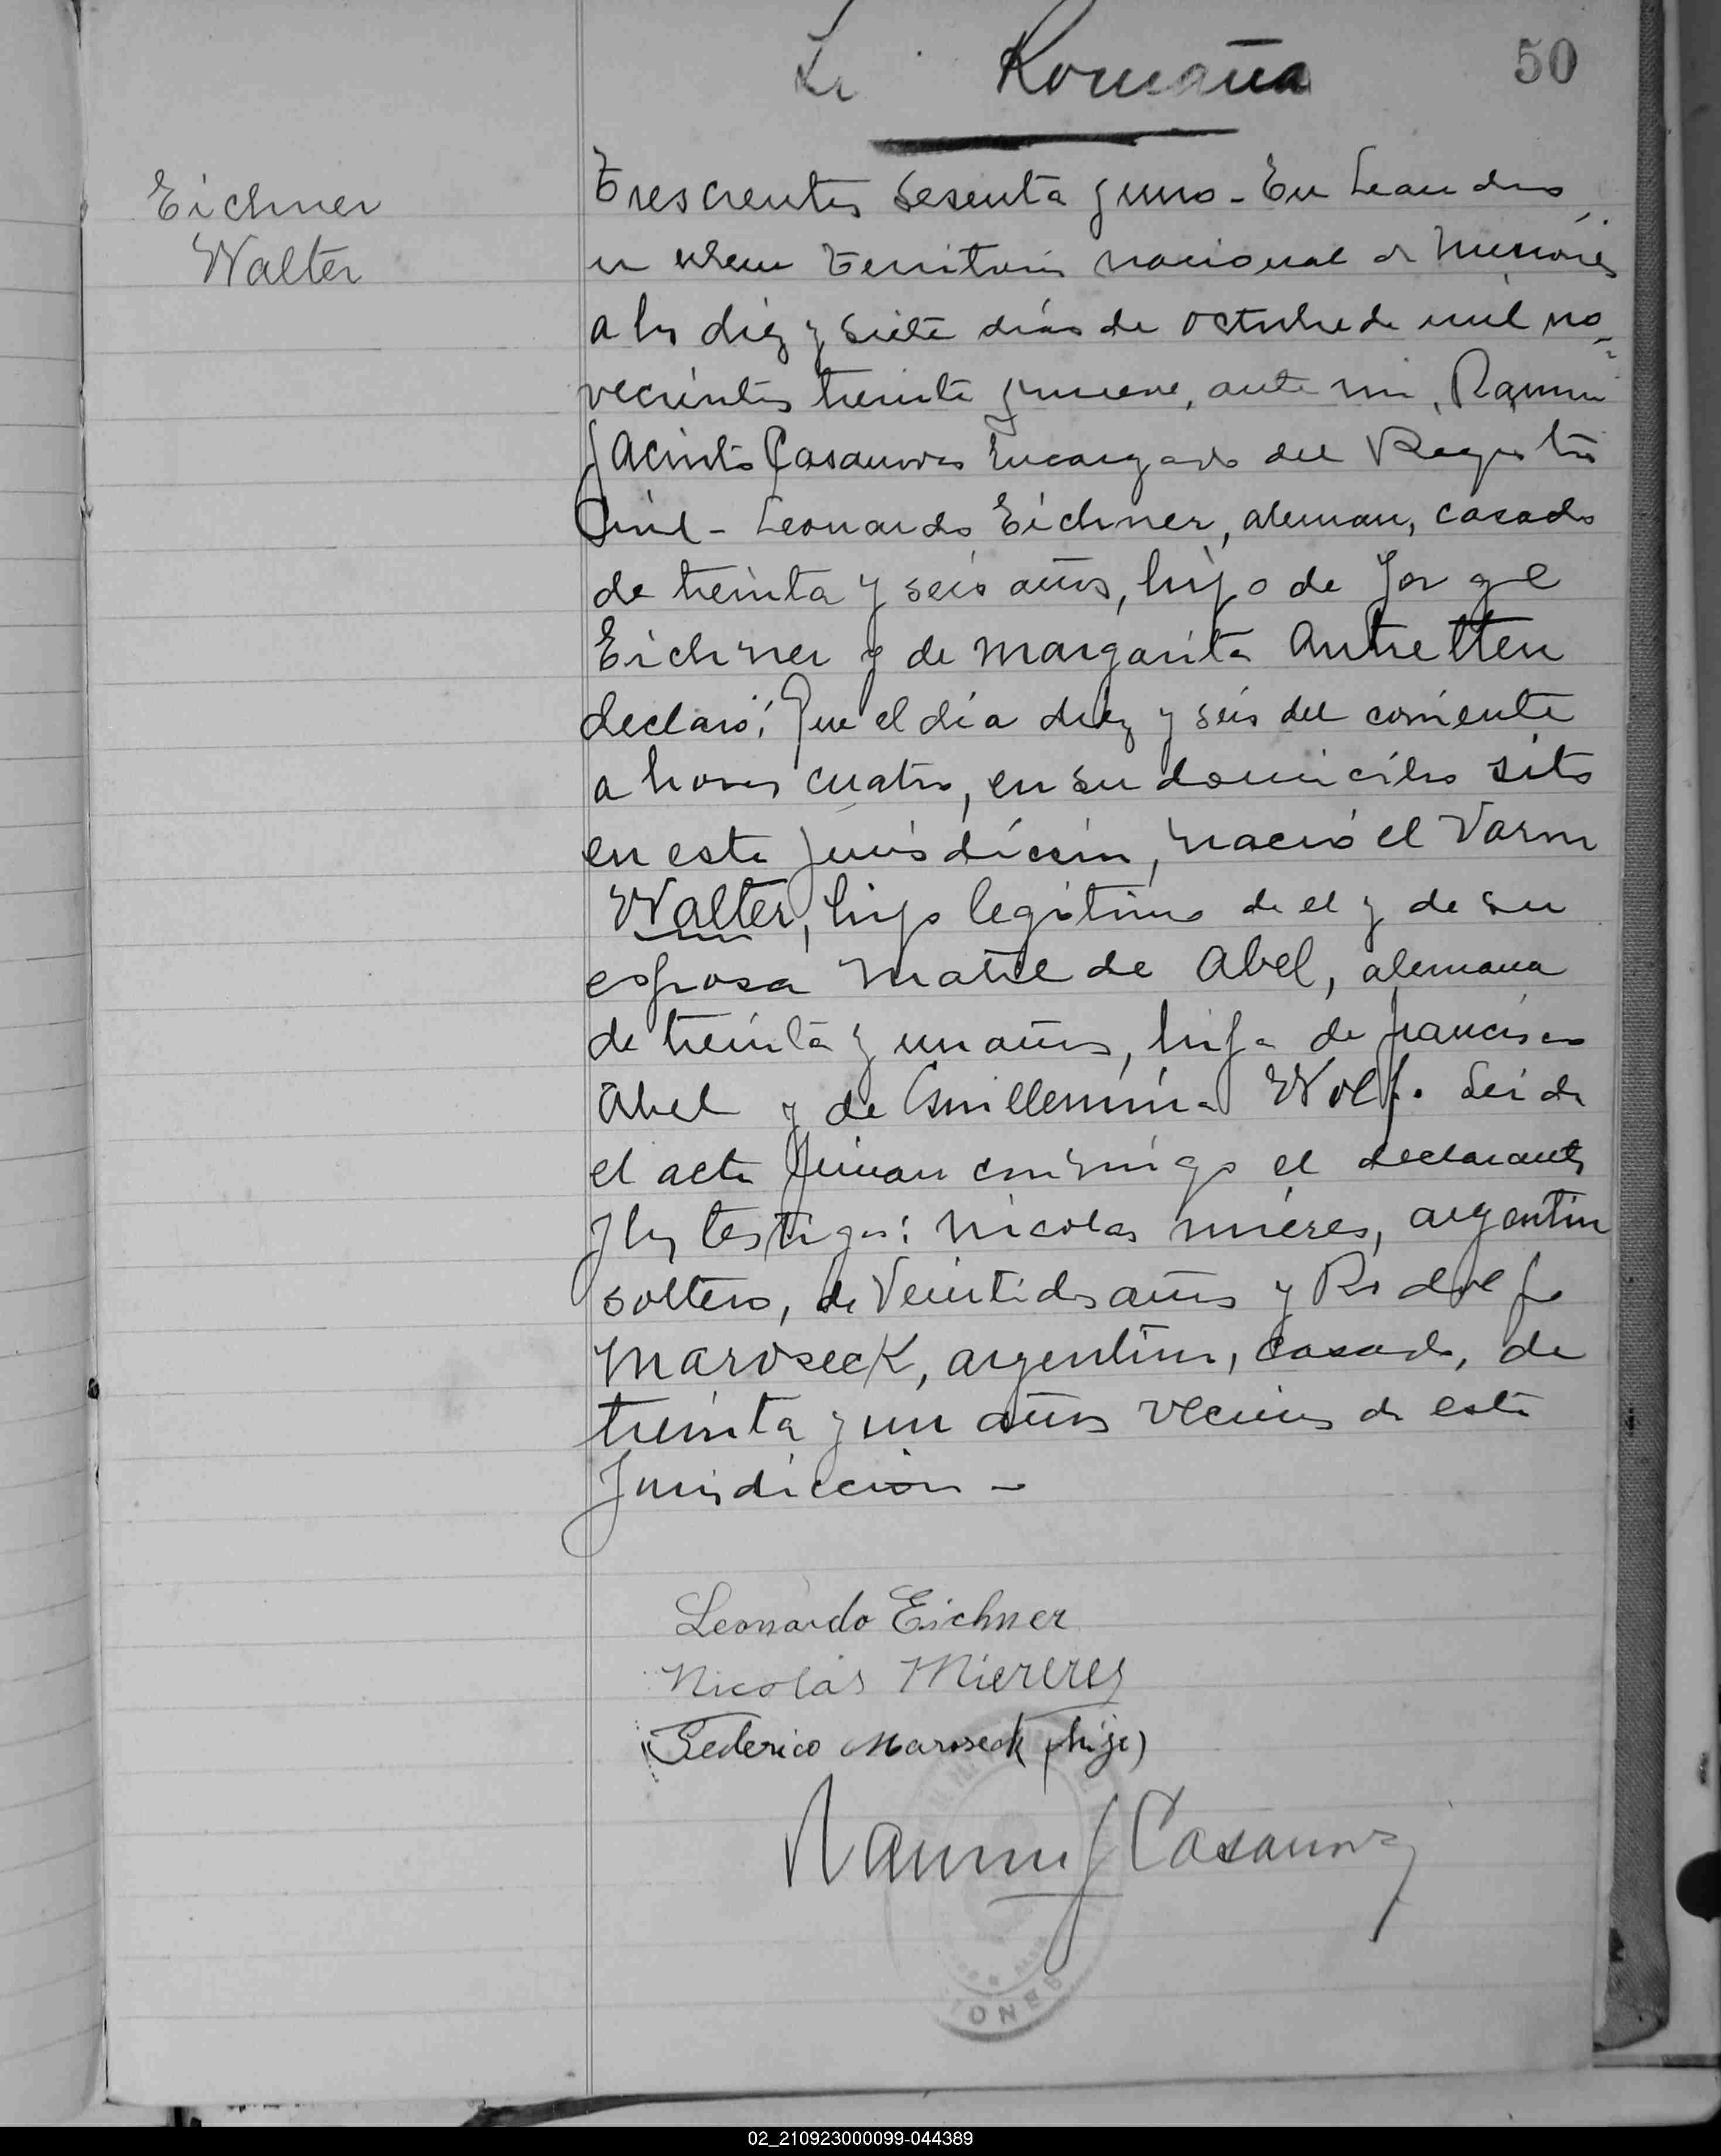 50
Eichner
Walter
Trescientos sesenta y uno - En Leandro
N. Alem Territorio nacional de Misiones
a los diez y siete dias de octubre de mil no-
vecientos treinta y nueve, ante mi, Ramon
Jacinto Casanova Encargado del Registro
Civil - Leonardo Eichner, aleman, casado
de treinta y seis años, hijo de Jorge
Eichner y de Margarita Antretter
declaró: Que el dia diez y seis del corriente
a horas cuatro, en su domicilio sito
en esta jurisdiccion, nació el varon
Walter, hijo legítimo de el y de su
esposa de Abel, alemana
de treinta y un años, hija de Francisco
Abel y de Guillermina Wolf. Leida
el acta firman conmigo el declarante
y los testigos: Nicolas mieres, argentino
soltero, de veintidos años y Rodolfo
Maroseck, argentino, casado, de
treinta y un años vecinos de esta
Jurisdiccion -
Leonardo Eichner
Nicolás Miereres
Federico Maroseck (hijo)
Ramon J Casanova
02_210923000099-044389